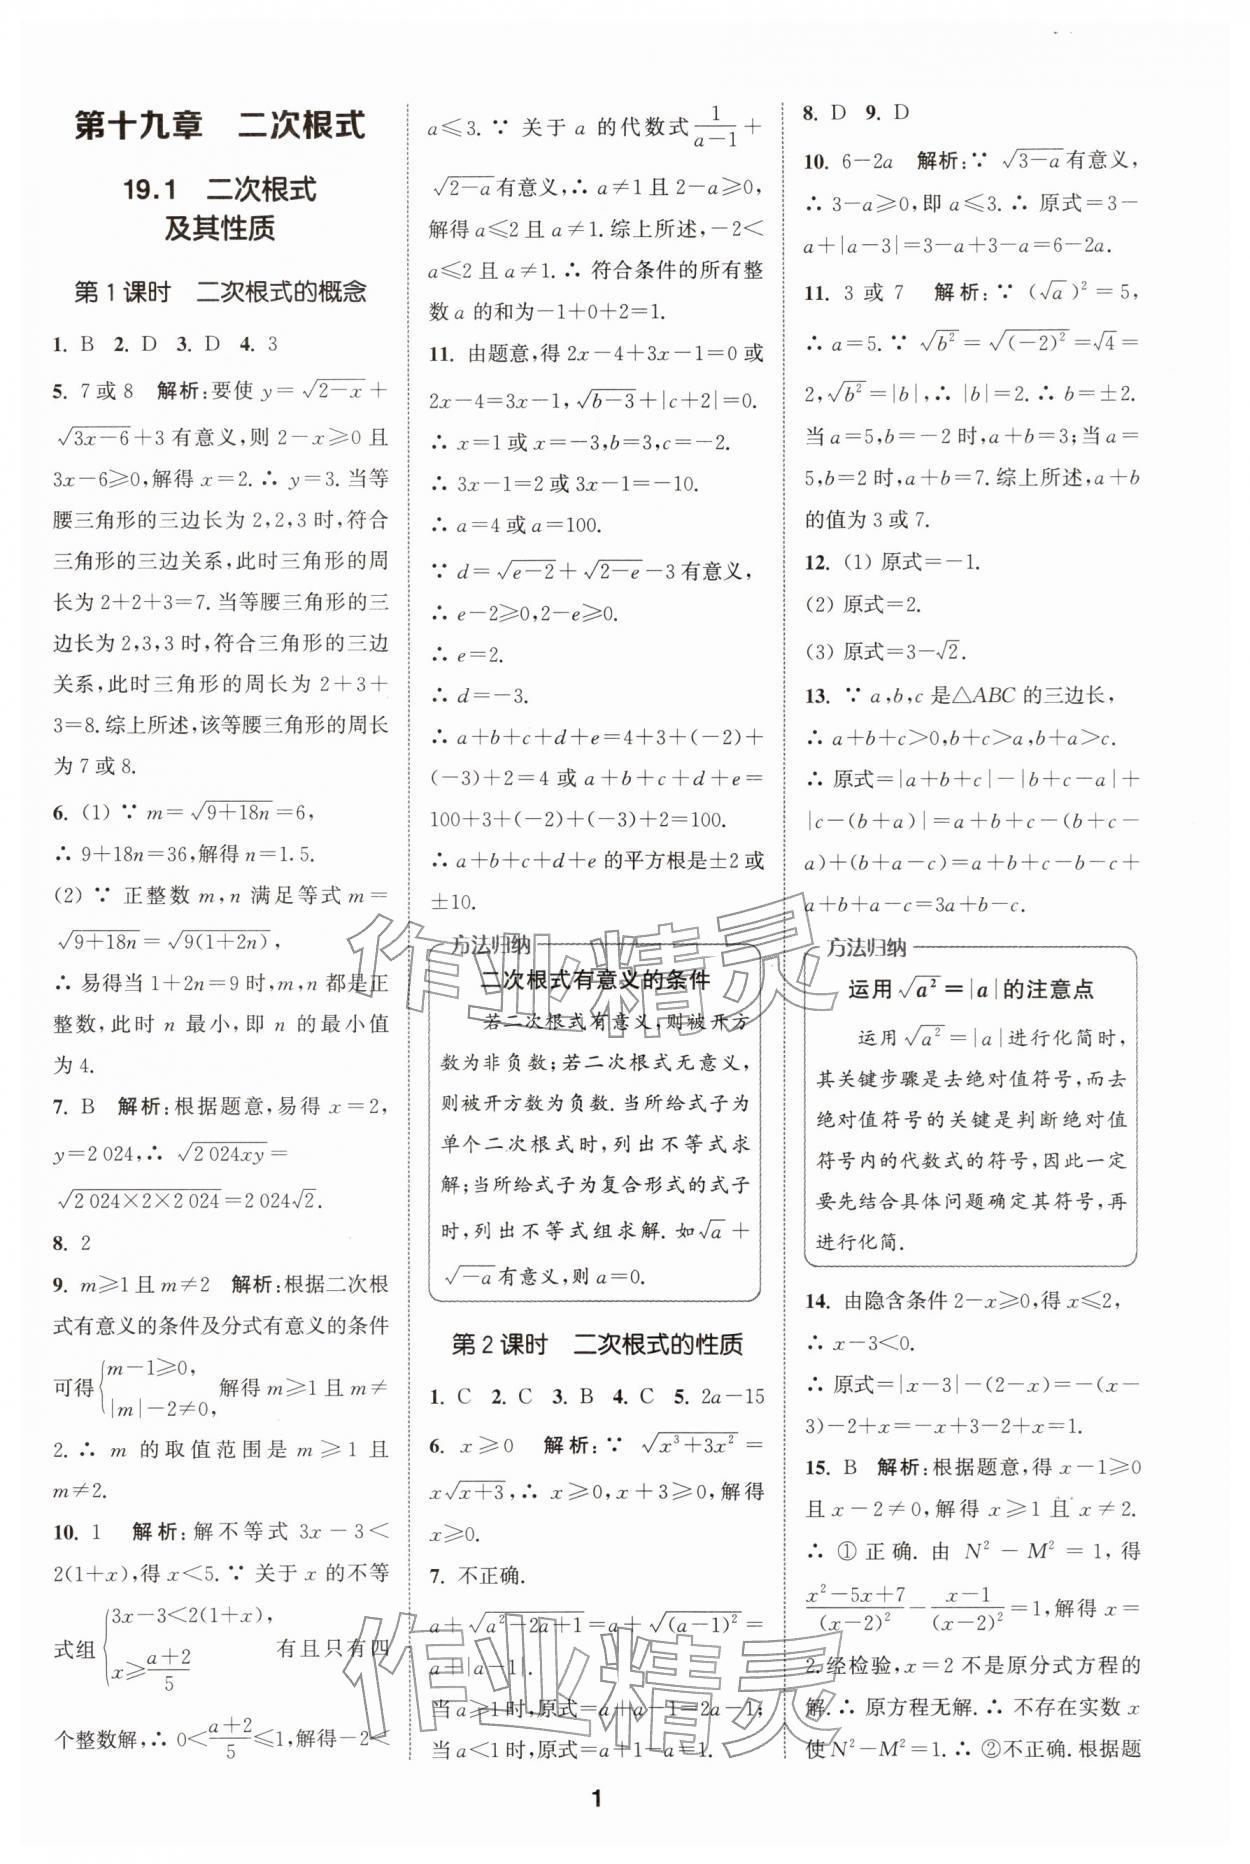 第十九章 二次根式
19.1 二次根式
及其性质
第1课时 二次根式的概念
1. B 2. D 3. D 4. 3
5. 7或8 解析:要使 y=√(2-x)+
√(3x-6)+3有意义,则2-x≥0且
3x-6≥0,解得x=2.∴ y=3.当等
腰三角形的三边长为2,2,3时,符合
三角形的三边关系,此时三角形的周
长为2+2+3=7.当等腰三角形的三
边长为2,3,3时,符合三角形的三边
关系,此时三角形的周长为2+3+
3=8.综上所述,该等腰三角形的周长
为7或8.
6. (1) ∵ m=√(9+18n)=6,
∴ 9+18n=36,解得n=1.5.
(2) ∵ 正整数m,n满足等式m=
√(9+18n)=√(9(1+2n)),
∴ 易得当1+2n=9时,m,n都是正
整数,此时n最小,即n的最小值
为4.
7. B 解析:根据题意,易得x=2,
y=2 024,∴ √(2 024xy)=
√(2 024×2×2 024)=2 024√2.
8. 2
9. m≥1且m≠2 解析:根据二次根
式有意义的条件及分式有意义的条件
可得{m-1≥0, |m|-2≠0, 解得m≥1且m≠
2.∴ m的取值范围是m≥1且
m≠2.
10. 1 解析:解不等式3x-3<
2(1+x),得x<5.∵ 关于x的不等
式组{3x-3<2(1+x), x≥(a+2)/5 有且只有四
个整数解,∴ 0<(a+2)/5≤1,解得-2<
a≤3.∵ 关于a的代数式1/(a-1)+
√(2-a)有意义,∴ a≠1且2-a≥0,
解得a≤2且a≠1.综上所述,-2<
a≤2且a≠1.∴ 符合条件的所有整
数a的和为-1+0+2=1.
11. 由题意,得2x-4+3x-1=0或
2x-4=3x-1,√(b-3)+|c+2|=0.
∴ x=1或x=-3,b=3,c=-2.
∴ 3x-1=2或3x-1=-10.
∴ a=4或a=100.
∵ d=√(e-2)+√(2-e)-3有意义,
∴ e-2≥0,2-e≥0.
∴ e=2.
∴ d=-3.
∴ a+b+c+d+e=4+3+(-2)+
(-3)+2=4或a+b+c+d+e=
100+3+(-2)+(-3)+2=100.
∴ a+b+c+d+e的平方根是±2或
±10.
方法归纳
二次根式有意义的条件
若二次根式有意义,则被开方
数为非负数;若二次根式无意义,
则被开方数为负数.当所给式子为
单个二次根式时,列出不等式求
解;当所给式子为复合形式的式子
时,列出不等式组求解.如√a+
√(-a)有意义,则a=0.
第2课时 二次根式的性质
1. C 2. C 3. B 4. C 5. 2a-15
6. x≥0 解析:∵ √(x³+3x²)=
x√(x+3),∴ x≥0,x+3≥0,解得
x≥0.
7. 不正确.
a+√(a²-2a+1)=a+√((a-1)²)=
a+|a-1|.
当a≥1时,原式=a+a-1=2a-1;
当a<1时,原式=a+1-a=1.
8. D 9. D
10. 6-2a 解析:∵ √(3-a)有意义,
∴ 3-a≥0,即a≤3.∴ 原式=3-
a+|a-3|=3-a+3-a=6-2a.
11. 3或7 解析:∵ (√a)²=5,
∴ a=5.∵ √(b²)=√((-2)²)=√4=
2,√(b²)=|b|,∴ |b|=2.∴ b=±2.
当a=5,b=-2时,a+b=3;当a=
5,b=2时,a+b=7.综上所述,a+b
的值为3或7.
12. (1) 原式=-1.
(2) 原式=2.
(3) 原式=3-√2.
13. ∵ a,b,c是△ABC的三边长,
∴ a+b+c>0,b+c>a,b+a>c.
∴ 原式=|a+b+c|-|b+c-a|+
|c-(b+a)|=a+b+c-(b+c-
a)+(b+a-c)=a+b+c-b-c+
a+b+a-c=3a+b-c.
方法归纳
运用√(a²)=|a|的注意点
运用√(a²)=|a|进行化简时,
其关键步骤是去绝对值符号,而去
绝对值符号的关键是判断绝对值
符号内的代数式的符号,因此一定
要先结合具体问题确定其符号,再
进行化简.
14. 由隐含条件2-x≥0,得x≤2,
∴ x-3<0.
∴ 原式=|x-3|-(2-x)=-(x-
3)-2+x=-x+3-2+x=1.
15. B 解析:根据题意,得x-1≥0
且x-2≠0,解得x≥1且x≠2.
∴ ①正确.由N²-M²=1,得
(x²-5x+7)/(x-2)²-(x-1)/(x-2)²=1,解得x=
2.经检验,x=2不是原分式方程的
解.∴ 原方程无解.∴ 不存在实数x
使N²-M²=1.∴ ②不正确.根据题
1
作业精灵
作业精灵